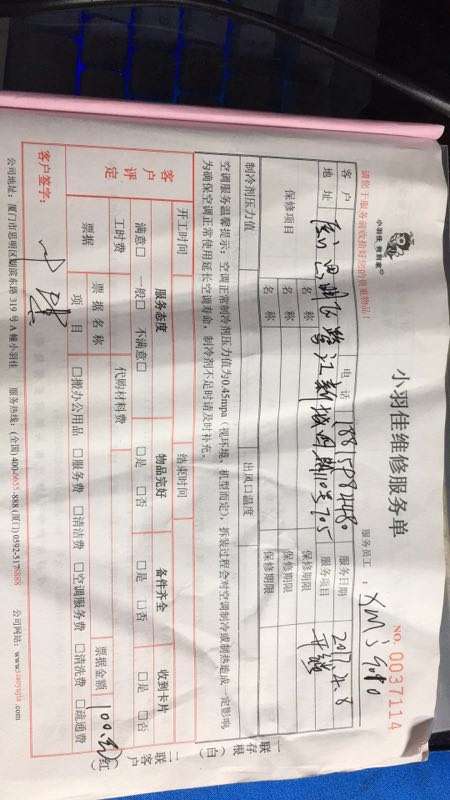 小羽佳 熊熊家®
小羽佳维修服务单
NO. 0037114
服务员工:
请您于服务前收检好您的贵重物品!
客户 电话 服务日期 2017.4.8
地址 服务项目
保修项目 名称 保修期限
名称 保修期限
名称 保修期限
制冷剂压力值 出风口温度
空调服务温馨提示:空调正常制冷剂压力值为0.45mpa(视环境、机型而定),拆装过程会对空调制冷或制热造成一定影响,
为确保空调正常使用延长空调寿命,制冷剂不足时请及时补充。
开工时间 结束时间
客户评定 服务态度 物品完好 备件齐全 收到卡片
满意□ 一般□ 不满意□ □是 □否 □是 □否 □是 □否
工时费 代购材料费
票据 票据名称 票据金额
项目 □报办公用品 □服务费 □清洁费 □空调服务费 □清洗费 □疏通费
客户签字:
公司地址:厦门市思明区湖滨东路 319 号 A 幢小羽佳 服务热线:(全国) -888 (厦门) 公司网站:
一联存根(白)
二联客户(红)